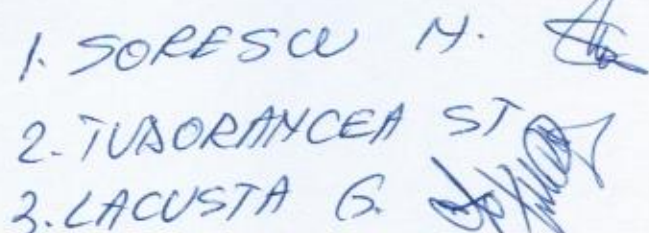 1. SORESCU M.
2. TUDORANCEA ST
3. LACUSTA G.